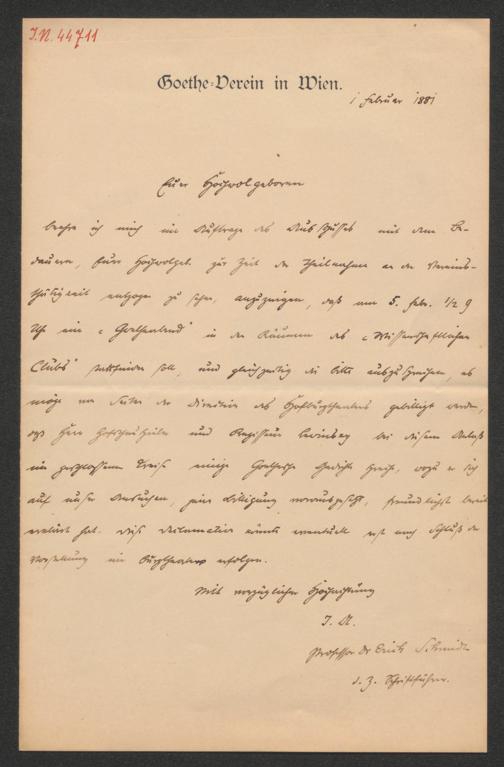 I.N. 44711
Goethe-Verein in Wien.
1 Februar 1881
Euer Hochwolgeboren
beehre ich mich im Auftrage des Ausschusses mit dem Be-
dauern, Euer Hochwolgeb. zur Zeit der Theilnahme an der Vereins-
thätigkeit entzogen zu sehen, anzuzeigen, daß am 5. Febr. 1/2 9
Uhr ein „Goetheabend" in den Räumen des „Wissenschaftlichen
Clubs" stattfinden soll, und gleichzeitig die Bitte auszusprechen, es
möge von Seiten der Direction des Hofburgtheaters gebilligt werden,
daß Herr Hofschauspieler und Regisseur Lewinsky bei diesem Anlaß
im geschlossenen Kreise einige Goethesche Gedichte spreche, wozu er sich
auf unser Ansuchen, jene Billigung vorausgesetzt, freundlichst bereit
erklärt hat. Diese Declamation könnte eventuell erst nach Schluß der
Vorstellung im Burgtheater erfolgen.
Mit vorzüglicher Hochachtung
I. A.
Professor Dr Erich Schmidt
d. Z. Schriftführer.